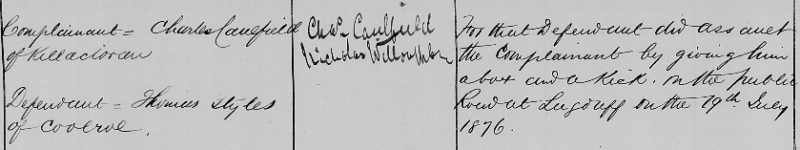 Complainant = Charles Caulfield
of Killacloran
Defendant = Thomas Styles
of Coolroe.
Chas. Caulfield
Nicholas Willoughby
For that Defendant did assault
the Complainant by giving him
a box and a kick. on the public
Road at Lugduff on the 19th July
1876.